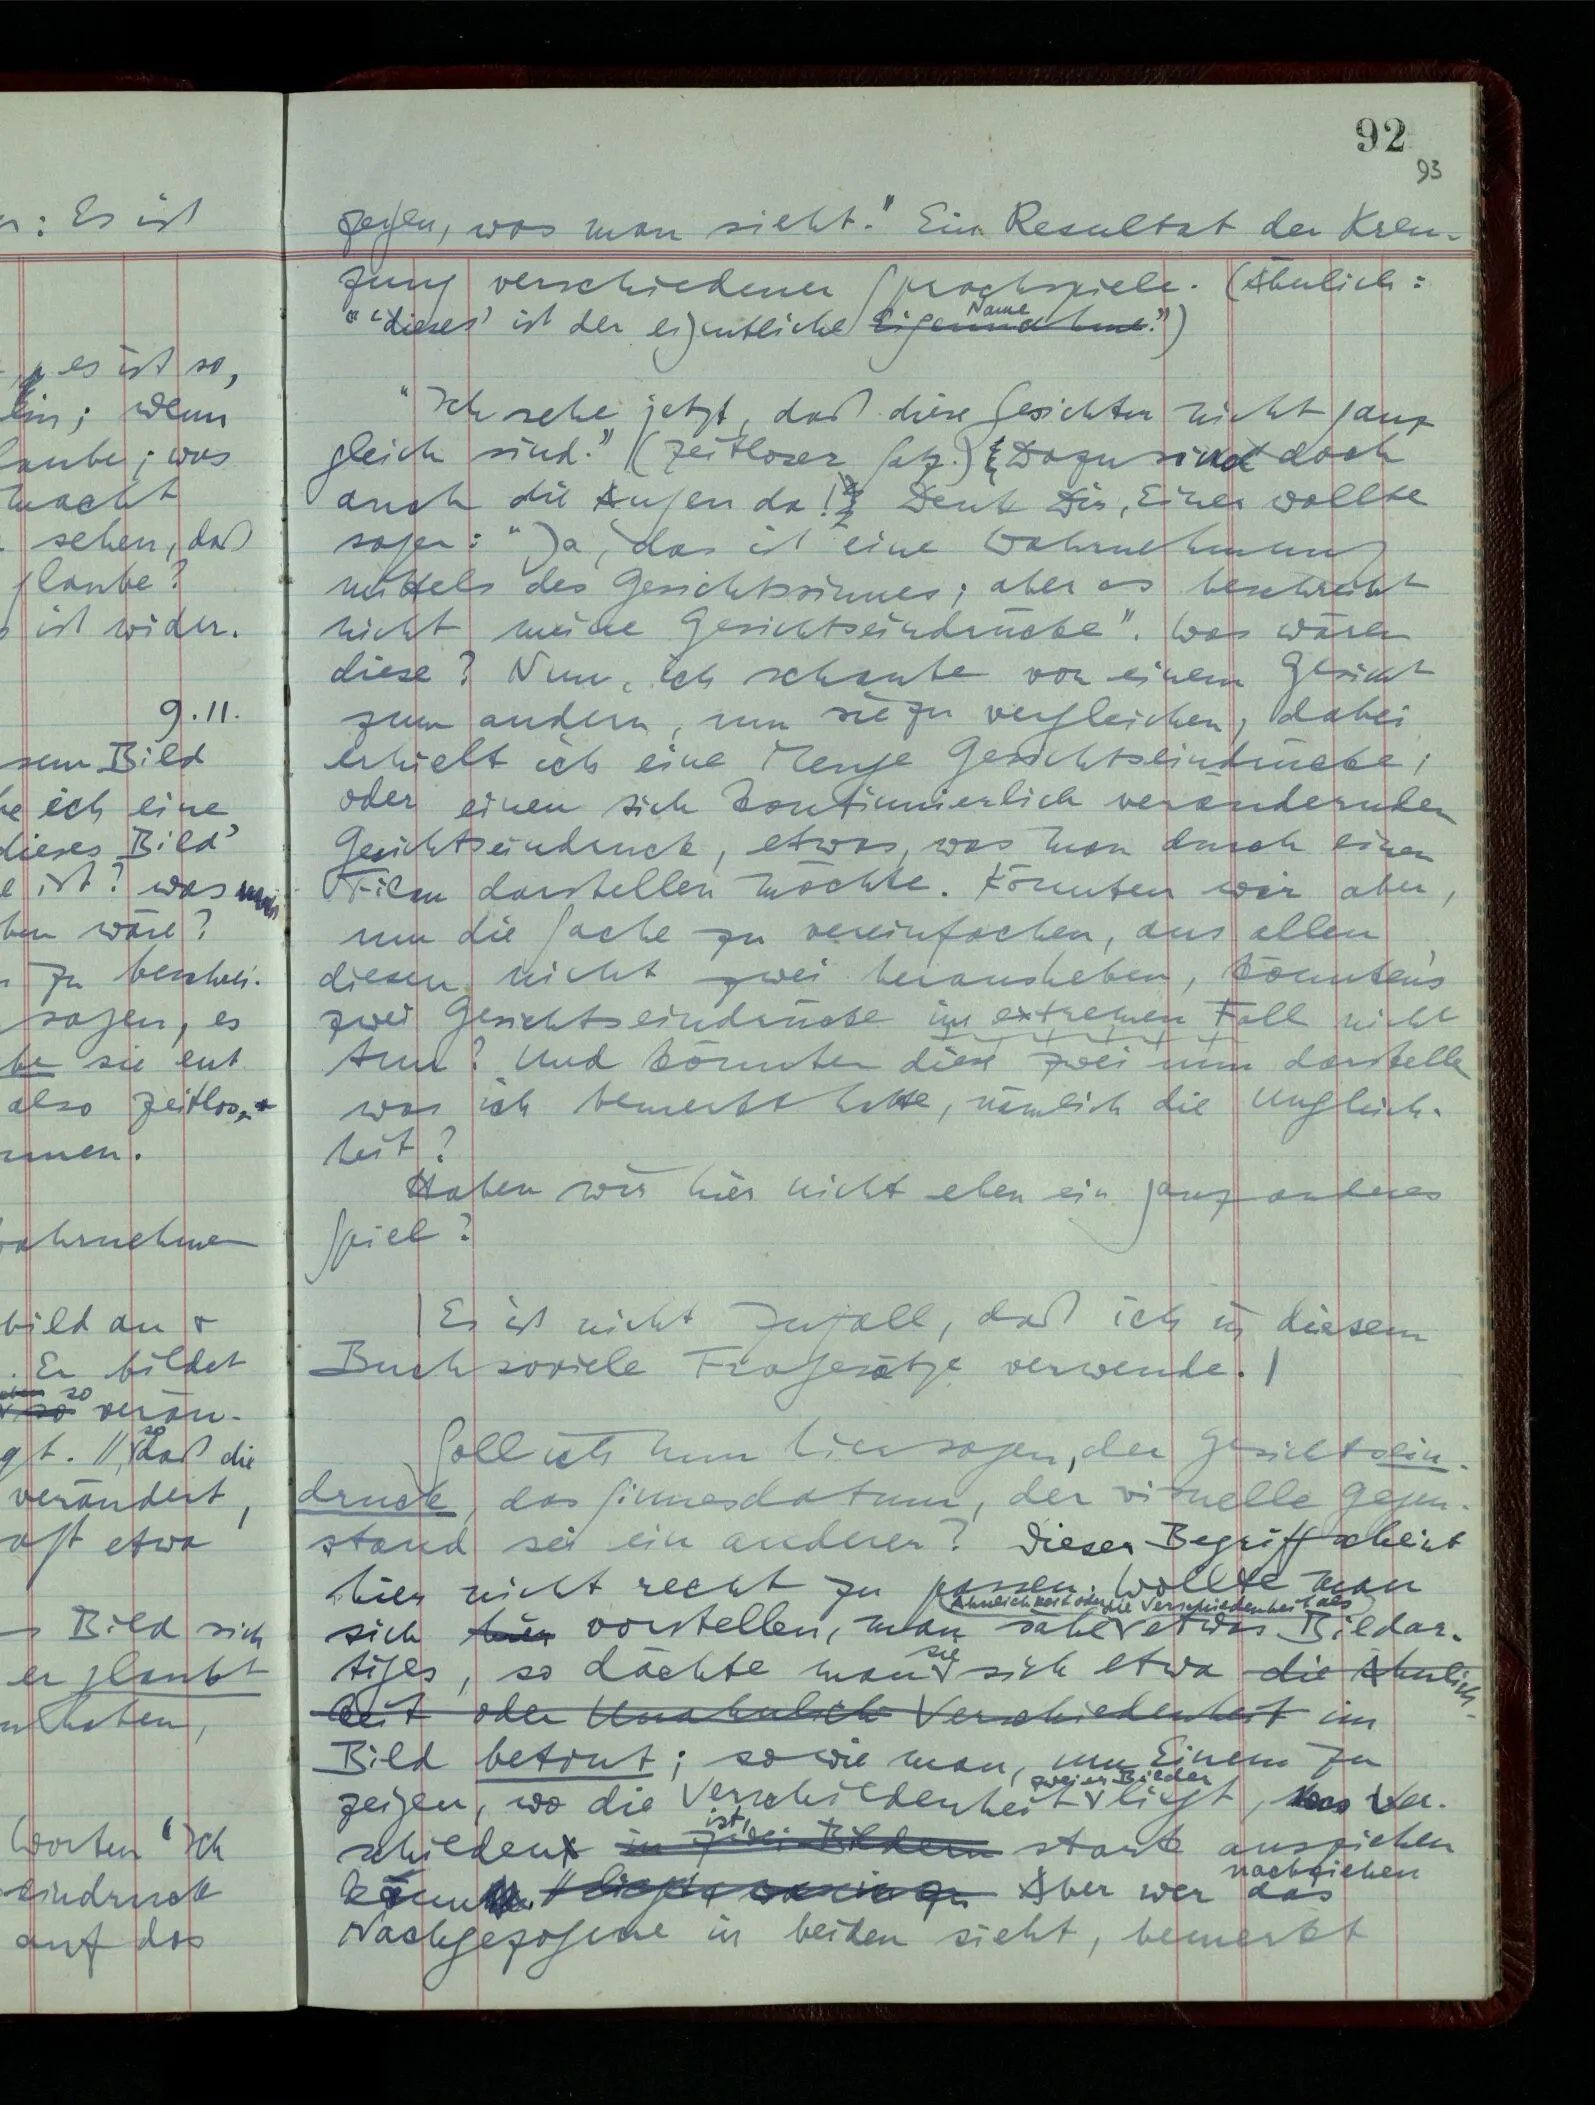 n: Es ist
es ist so,
ein; wenn
laube; was
macht
sehen, daß
glaube?
ist wider-
9.11.
sem Bild
be ich eine
dieses Bild'
e ist? was
ben wäre?
zu beschrei-
sagen, es
be sie ent
also zeitlos,
mmen.
wahrnehmen
bild an &
. Er bildet
so
so verän-
so
gt. // daß die
verändert,
oft etwa
Bild sich
er glaubt
haben,
Worten "Ich
eindruck
auf das
92
93
zeigen, was man sieht." Ein Resultat der Kreu-
zung verschiedener Sprachspiele. (Ähnlich:
Name
"'dieses' ist der eigentliche Eigennahme.")
"Ich sehe jetzt, daß diese Gesichter nicht ganz
gleich sind." (Zeitloser Satz.) Dazu sind doch
auch die Augen da! Denk Dir, Einer wollte
sagen: "Ja, das ist eine Wahrnehmung
mittels des Gesichtssinnes; aber es beschreibt
nicht meine Gesichtseindrücke". Was wären
diese? Nun, ich schaute von einem Gesicht
zum andern, um sie zu vergleichen; dabei
erhielt ich eine Menge Gesichtseindrücke;
oder einen sich kontinuierlich verändernden
Gesichtseindruck, etwas, was man durch einen
Film darstellen möchte. Könnten wir aber,
um die Sache zu vereinfachen, aus allen
diesen nicht zwei herausheben, könnten's
zwei Gesichtseindrücke im extremen Fall nicht
tun? Und könnten diese zwei nun darstellen
was ich bemerkt hatte, nämlich die Ungleich-
heit?
Haben wir hier nicht eben ein ganz anderes
Spiel?
| Es ist nicht Zufall, daß ich in diesem
Buch soviele Fragesätze verwende. |
Soll ich nun hier sagen, der Gesichtsein-
druck, das Sinnesdatum, der visuelle Gegen-
stand sei ein anderer? Dieser Begriff scheint
hier nicht recht zu passen. Wollte man
Ähnlichkeit oder die Verschiedenheit als
sich hier vorstellen, man sähe etwas Bildar-
sie
tiges, so dächte man sich etwa die Ähnlich-
keit oder Unähnlich Verschiedenheit im
Bild betont; so wie man, um Einem zu
zweier Bilder
zeigen, wo die Verschiedenheit liegt, was ver-
ist,
schieden in zwei Bildern stark ausziehen
nachziehen
könnte. Aber wer das
Nachgezogene in beiden sieht, bemerkt